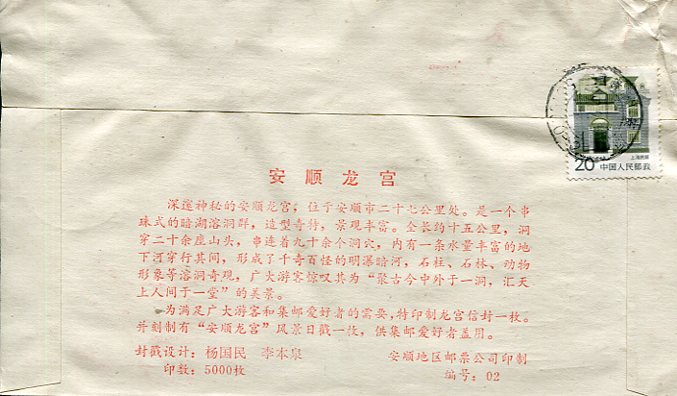 上海民居
20 中国人民邮政
安顺龙宫
深邃神秘的安顺龙宫，位于安顺市二十七公里处。是一个串
珠式的暗湖溶洞群，造型奇特，景观丰富。全长约十五公里，洞
穿二十余座山头，串连着九十余个洞穴，内有一条水量丰富的地
下河穿行其间，形成了千奇百怪的明瀑暗河，石柱、石林、动物
形象等溶洞奇观，广大游客惊叹其为“聚古今中外于一洞，汇天
上人间于一堂”的美景。
为满足广大游客和集邮爱好者的需要，特印制龙宫信封一枚。
并刻制有“安顺龙宫”风景日戳一枚，供集邮爱好者盖用。
封戳设计：杨国民 李本泉
安顺地区邮票公司印制
印数：5000枚
编号：02